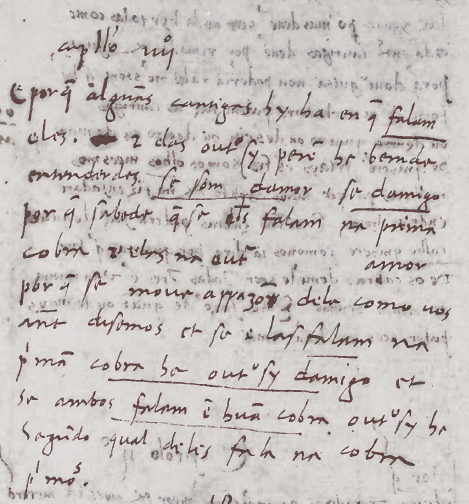 capitłō iiijº
E porq̄ algūas cantigas hy ha en q̄ falam
eles. 2 elas outºsy perē he bem de
entenderdes se som damor, se damigo
porq̄ sabede q̄ se els falam na prima
cobra 2 elas na outª amor
porq̄ se move a rrazō dela como vos
ant̄ disemos et se elas falam na
pimā cobra he outºsy damigo et
se ambos falam ē hūa cobra outºsy he
segundo qual deles fala na cobra
pimº.